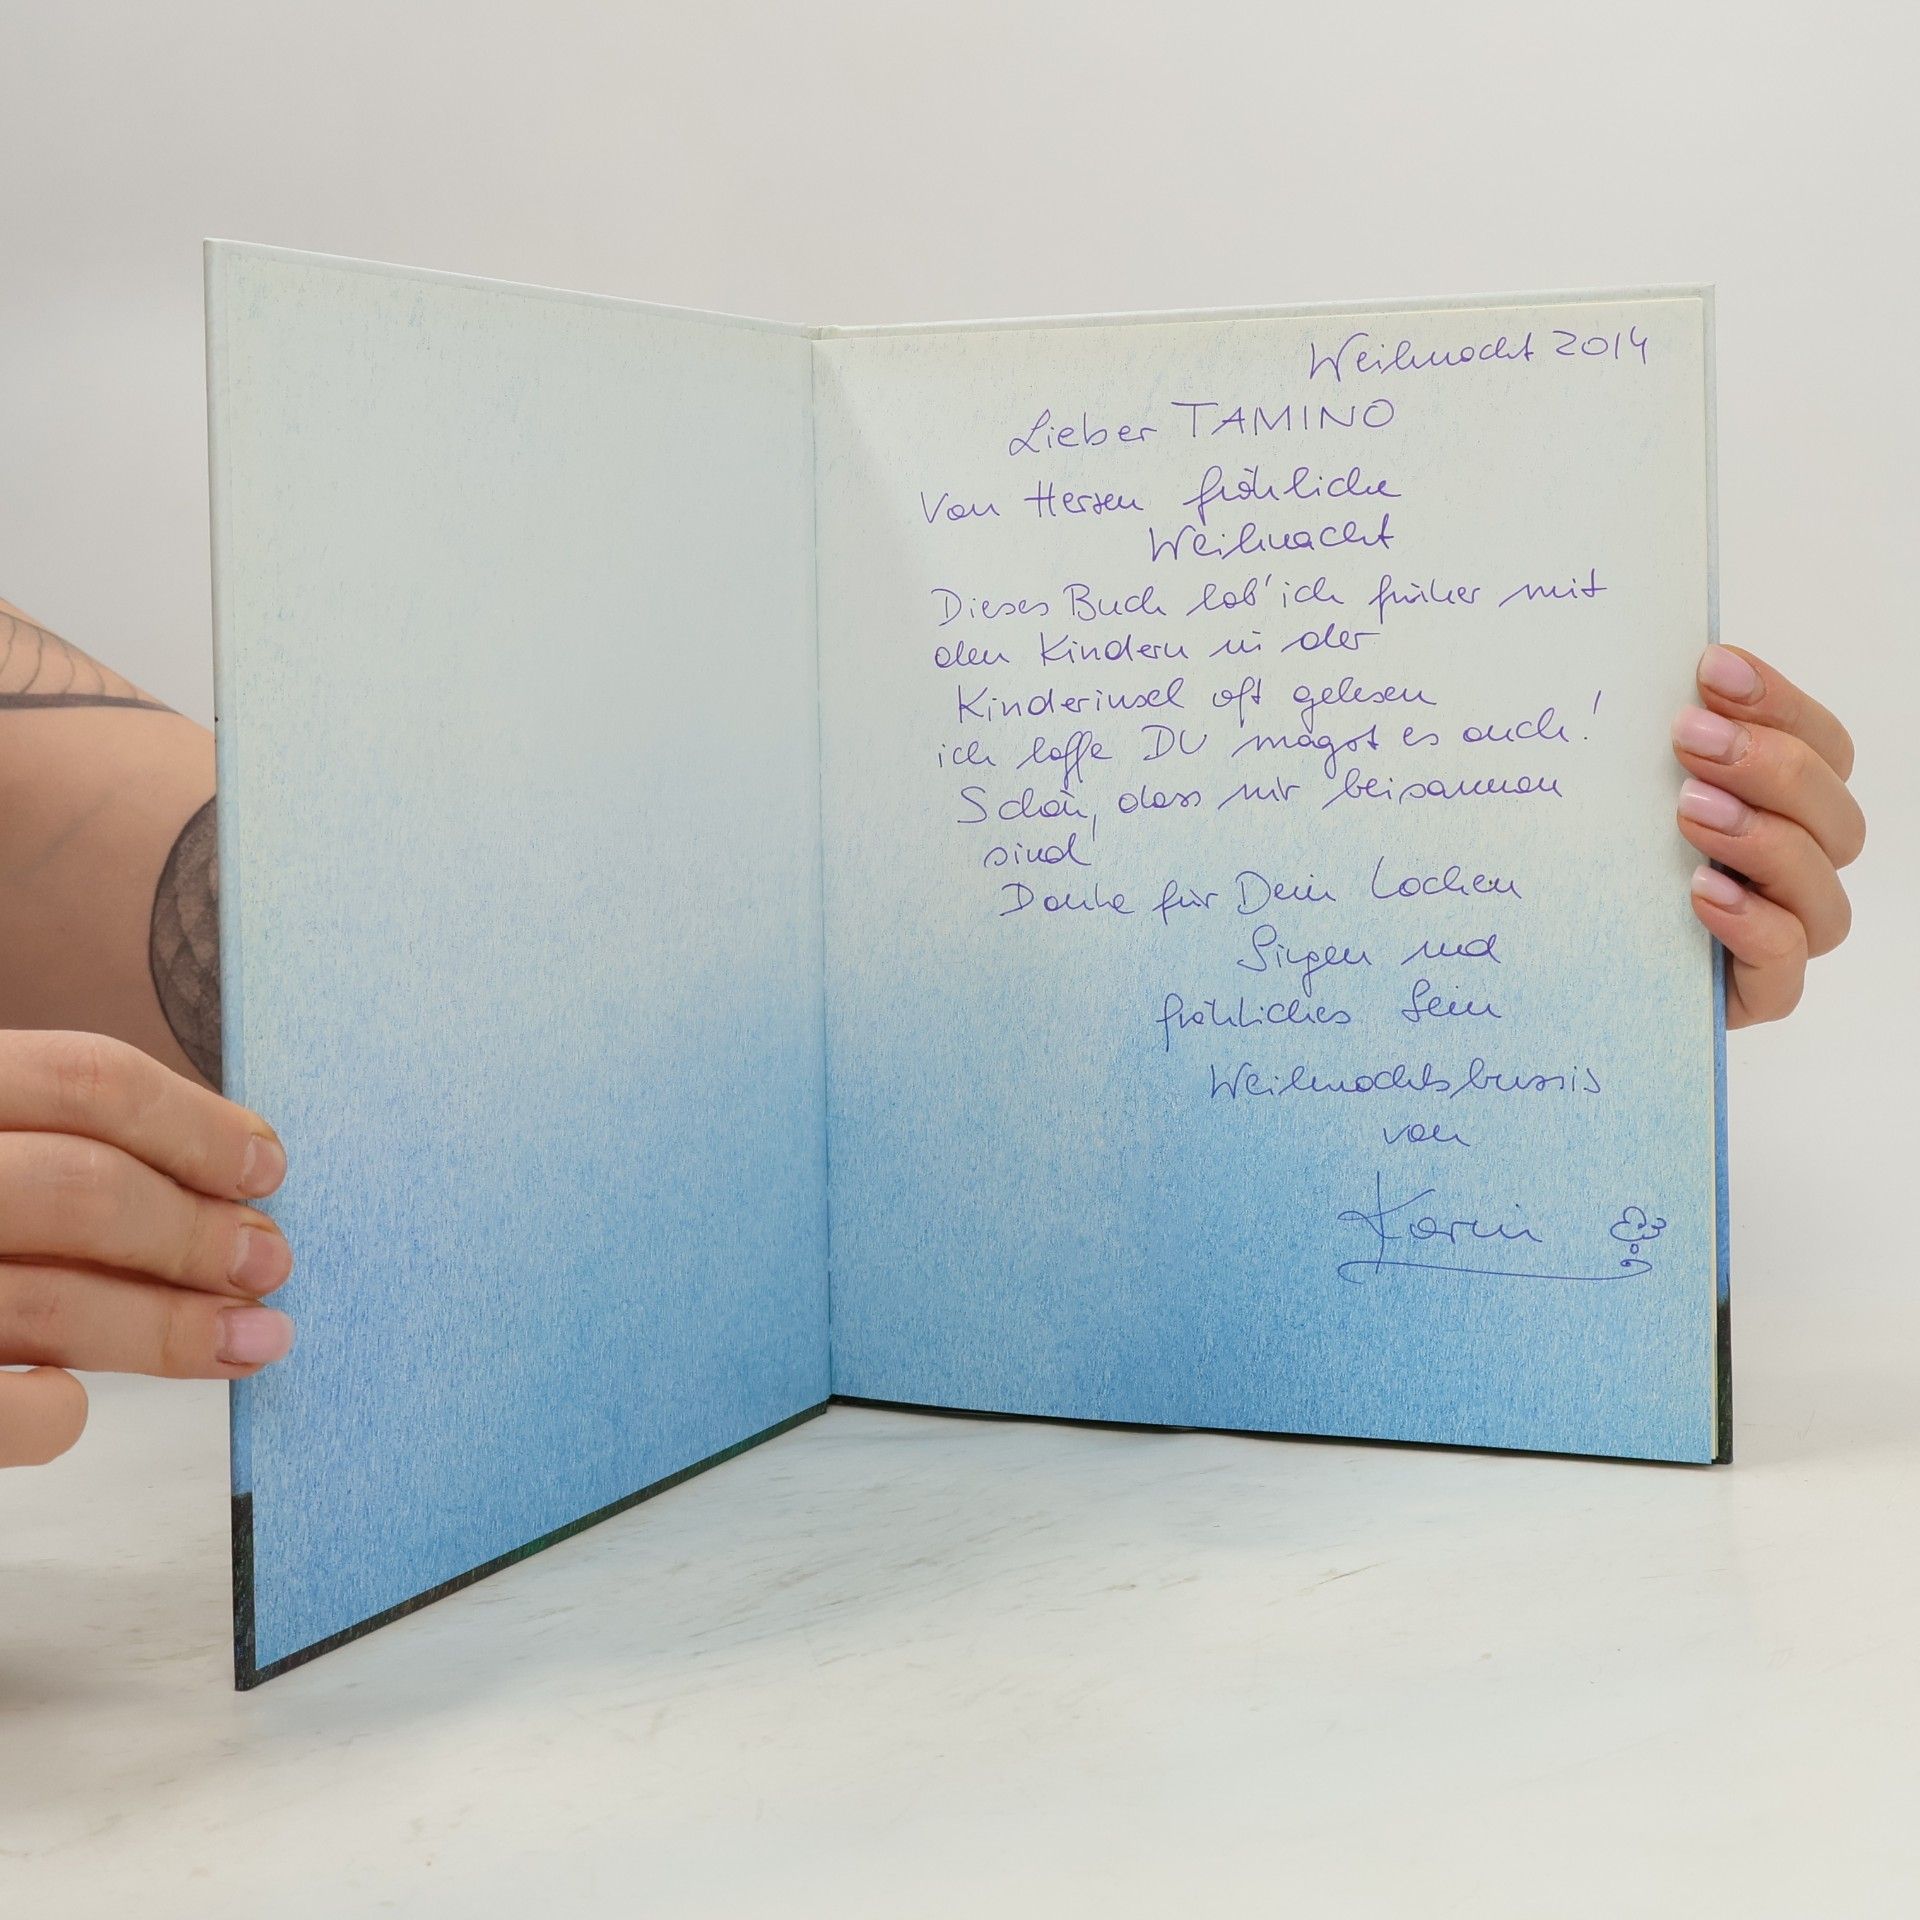 Weihnacht 2014
Lieber TAMINO
Von Herzen fröhliche
Weihnacht
Dieses Buch hab' ich früher mit
den Kindern in der
Kinderinsel oft gelesen
ich hoffe DU magst es auch!
Schön, dass wir beisammen
sind
Danke für Dein Lachen
Singen und
fröhliches Sein
Weihnachtsbussis
von
Karin